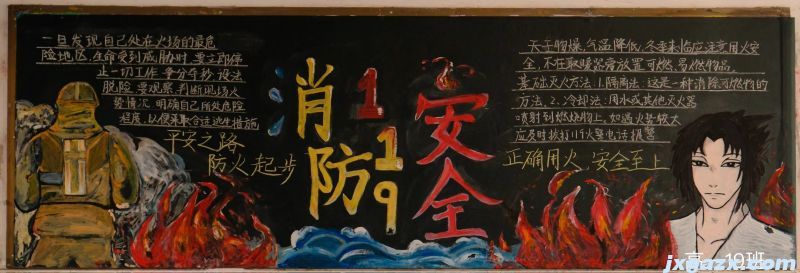 一旦发现自己处在火场的最危
险地区,生命受到威胁时,要立即停
止一切工作,争分夺秒,设法
脱险,要观察,判断现场火
势情况,明确自己所处危险
程度,以便采取合适逃生措施
平安之路
防火起步
消防
119
安全
天干物燥,气温降低,冬季来临应注意用火安
全,不在取暖器旁放置可燃、易燃物品
基础灭火方法:1.隔离法:这是一种消除可燃物的
方法,2、冷却法:用水或其他灭火器
喷射到燃烧物上,如遇火势较大
应及时拨打119火警电话报警
正确用火、安全至上
高一19班